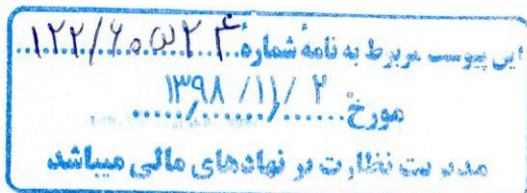 این پیوست مربوط به نامهٔ شمارهٔ ۱۲۲/۶۰۵۲۴
مورخ ۱۳۹۸/۱۱/۲
مدیریت نظارت بر نهادهای مالی میباشد